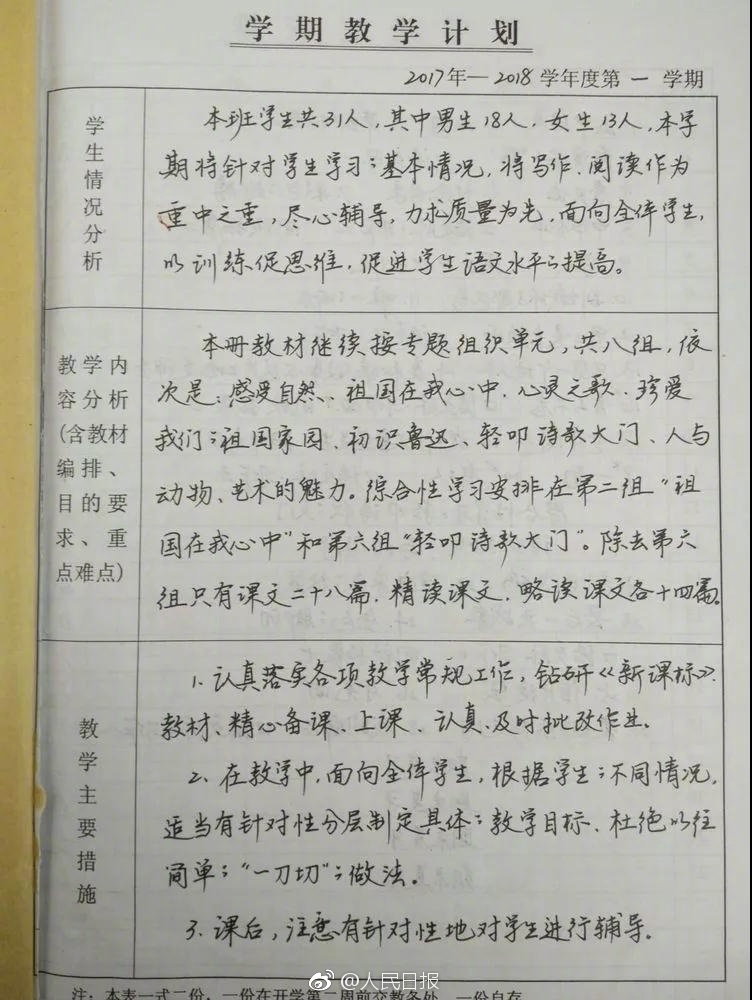 学期教学计划
2017年—2018学年度第一学期
学生情况分析
本班学生共31人，其中男生18人，女生13人，本学
期将针对学生学习的基本情况，将写作、阅读作为
重中之重，尽心辅导，力求质量为先，面向全体学生，
以训练促思维，促进学生语文水平的提高。
教学内
容分析
(含教材
编排、
目的要
求、重
点难点)
本册教材继续按专题组织单元，共八组，依
次是：感受自然、祖国在我心中、心灵之歌、珍爱
我们的祖国家园、初识鲁迅、轻叩诗歌大门、人与
动物、艺术的魅力。综合性学习安排在第二组“祖
国在我心中”和第六组“轻叩诗歌大门”。除去第六
组只有课文二十八篇，精读课文、略读课文各十四篇。
教学主要措施
1、认真落实各项教学常规工作，钻研《新课标》、
教材、精心备课、上课、认真、及时批改作业。
2、在教学中，面向全体学生，根据学生的不同情况，
适当有针对性分层制定具体的教学目标、杜绝以往
简单的“一刀切”的做法。
3、课后，注意有针对性地对学生进行辅导。
注：本表一式二份，一份在开学第二周前交教务处，一份自存
@人民日报